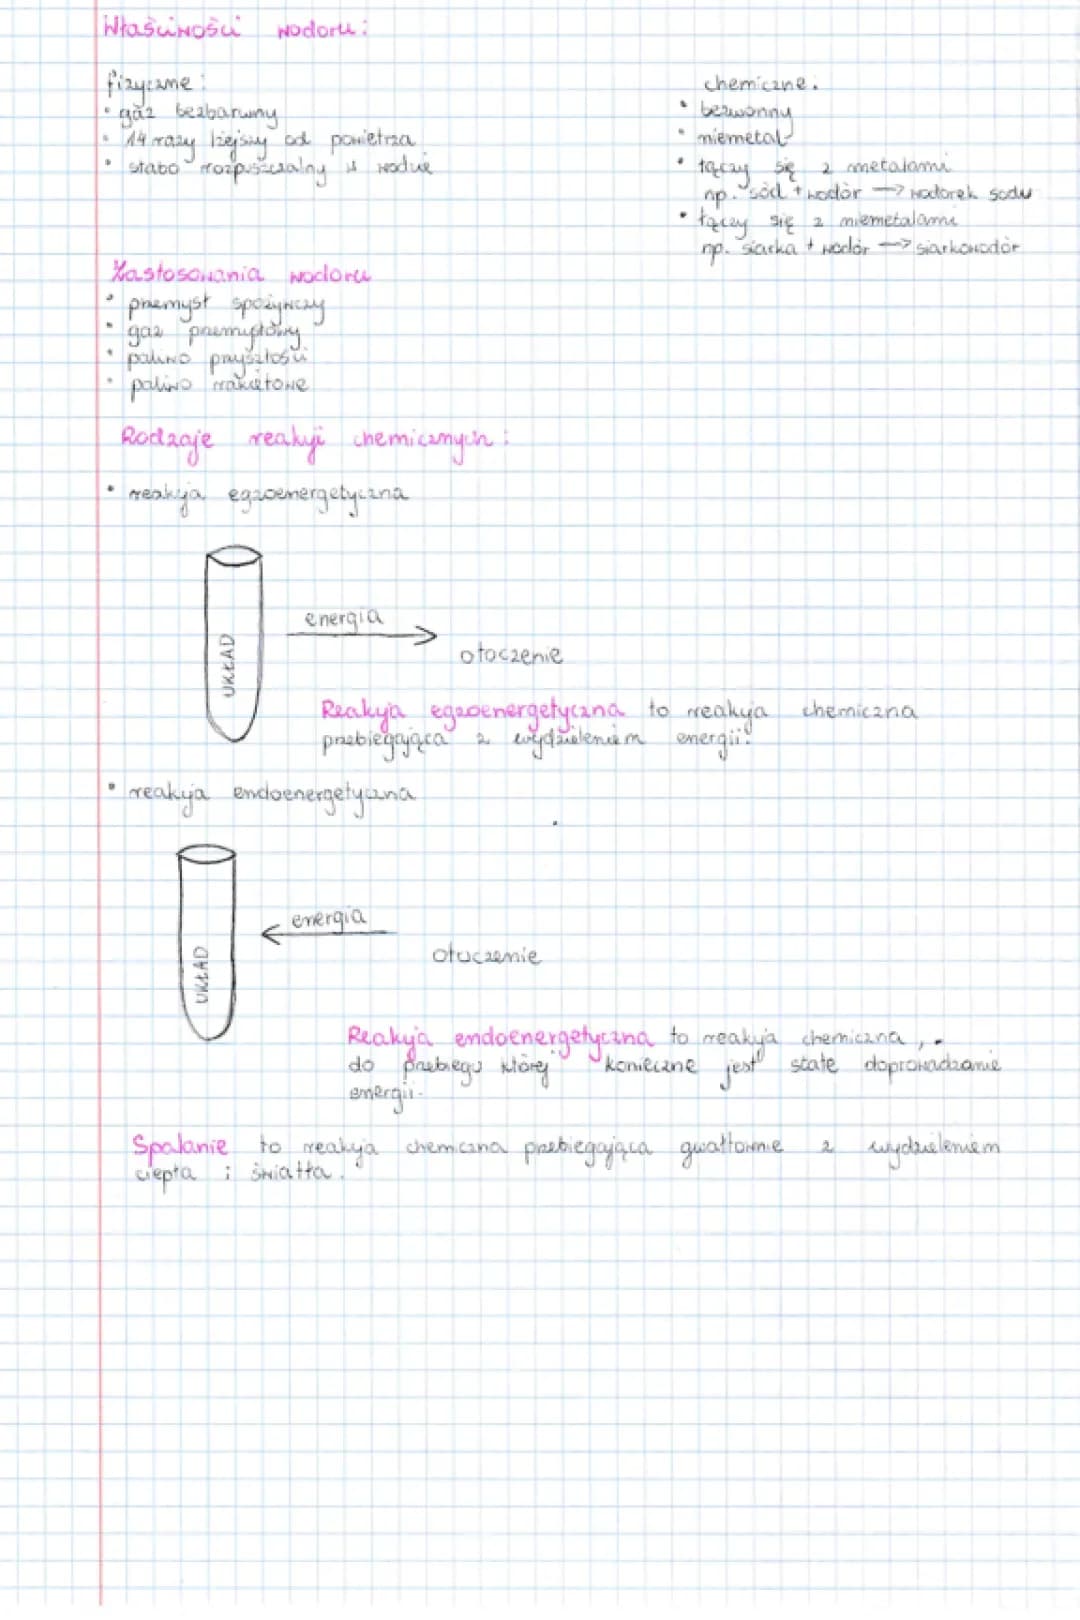 Właściwości wodoru:
fizyczne:
• gaz bezbarwny
• 14 razy lżejszy od powietrza
• słabo rozpuszczalny w wodzie
chemiczne:
• bezwonny
• niemetal
• łączy się z metalami
np. sód + wodór → wodorek sodu
• łączy się z niemetalami
np. siarka + wodór → siarkowodór
Zastosowania wodoru
• przemysł spożywczy
• gaz przemysłowy
• paliwo przyszłości
• paliwo rakietowe
Rodzaje reakcji chemicznych:
• reakcja egzoenergetyczna
UKŁAD
energia
otoczenie
Reakcja egzoenergetyczna to reakcja chemiczna
przebiegająca z wydzieleniem energii.
• reakcja endoenergetyczna
UKŁAD
energia
otoczenie
Reakcja endoenergetyczna to reakcja chemiczna,
do przebiegu której konieczne jest stałe doprowadzanie
energii.
Spalanie to reakcja chemiczna przebiegająca gwałtownie z wydzieleniem
ciepła i światła.